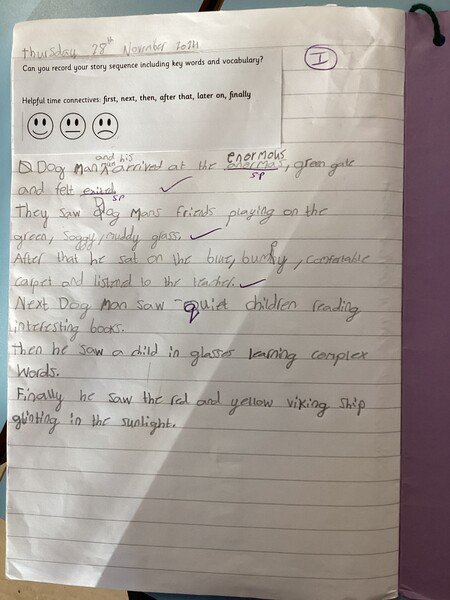 Thursday 28th November 2024
Can you record your story sequence including key words and vocabulary?
I
Helpful time connectives: first, next, then, after that, later on, finally
and his enormous
Dog Man arrived at the enormas, green gate
sp
and felt exited
sp
They saw Dog Mans friends playing on the
green, soggy, muddy glass.
After that he sat on the blue, bumpy, comfortable
carpet and listend to the teacher.
Next Dog Man saw quiet children reading
interesting books.
Then he saw a child in glasses learning complex
words.
Finally he saw the red and yellow viking ship
glinting in the sunlight.